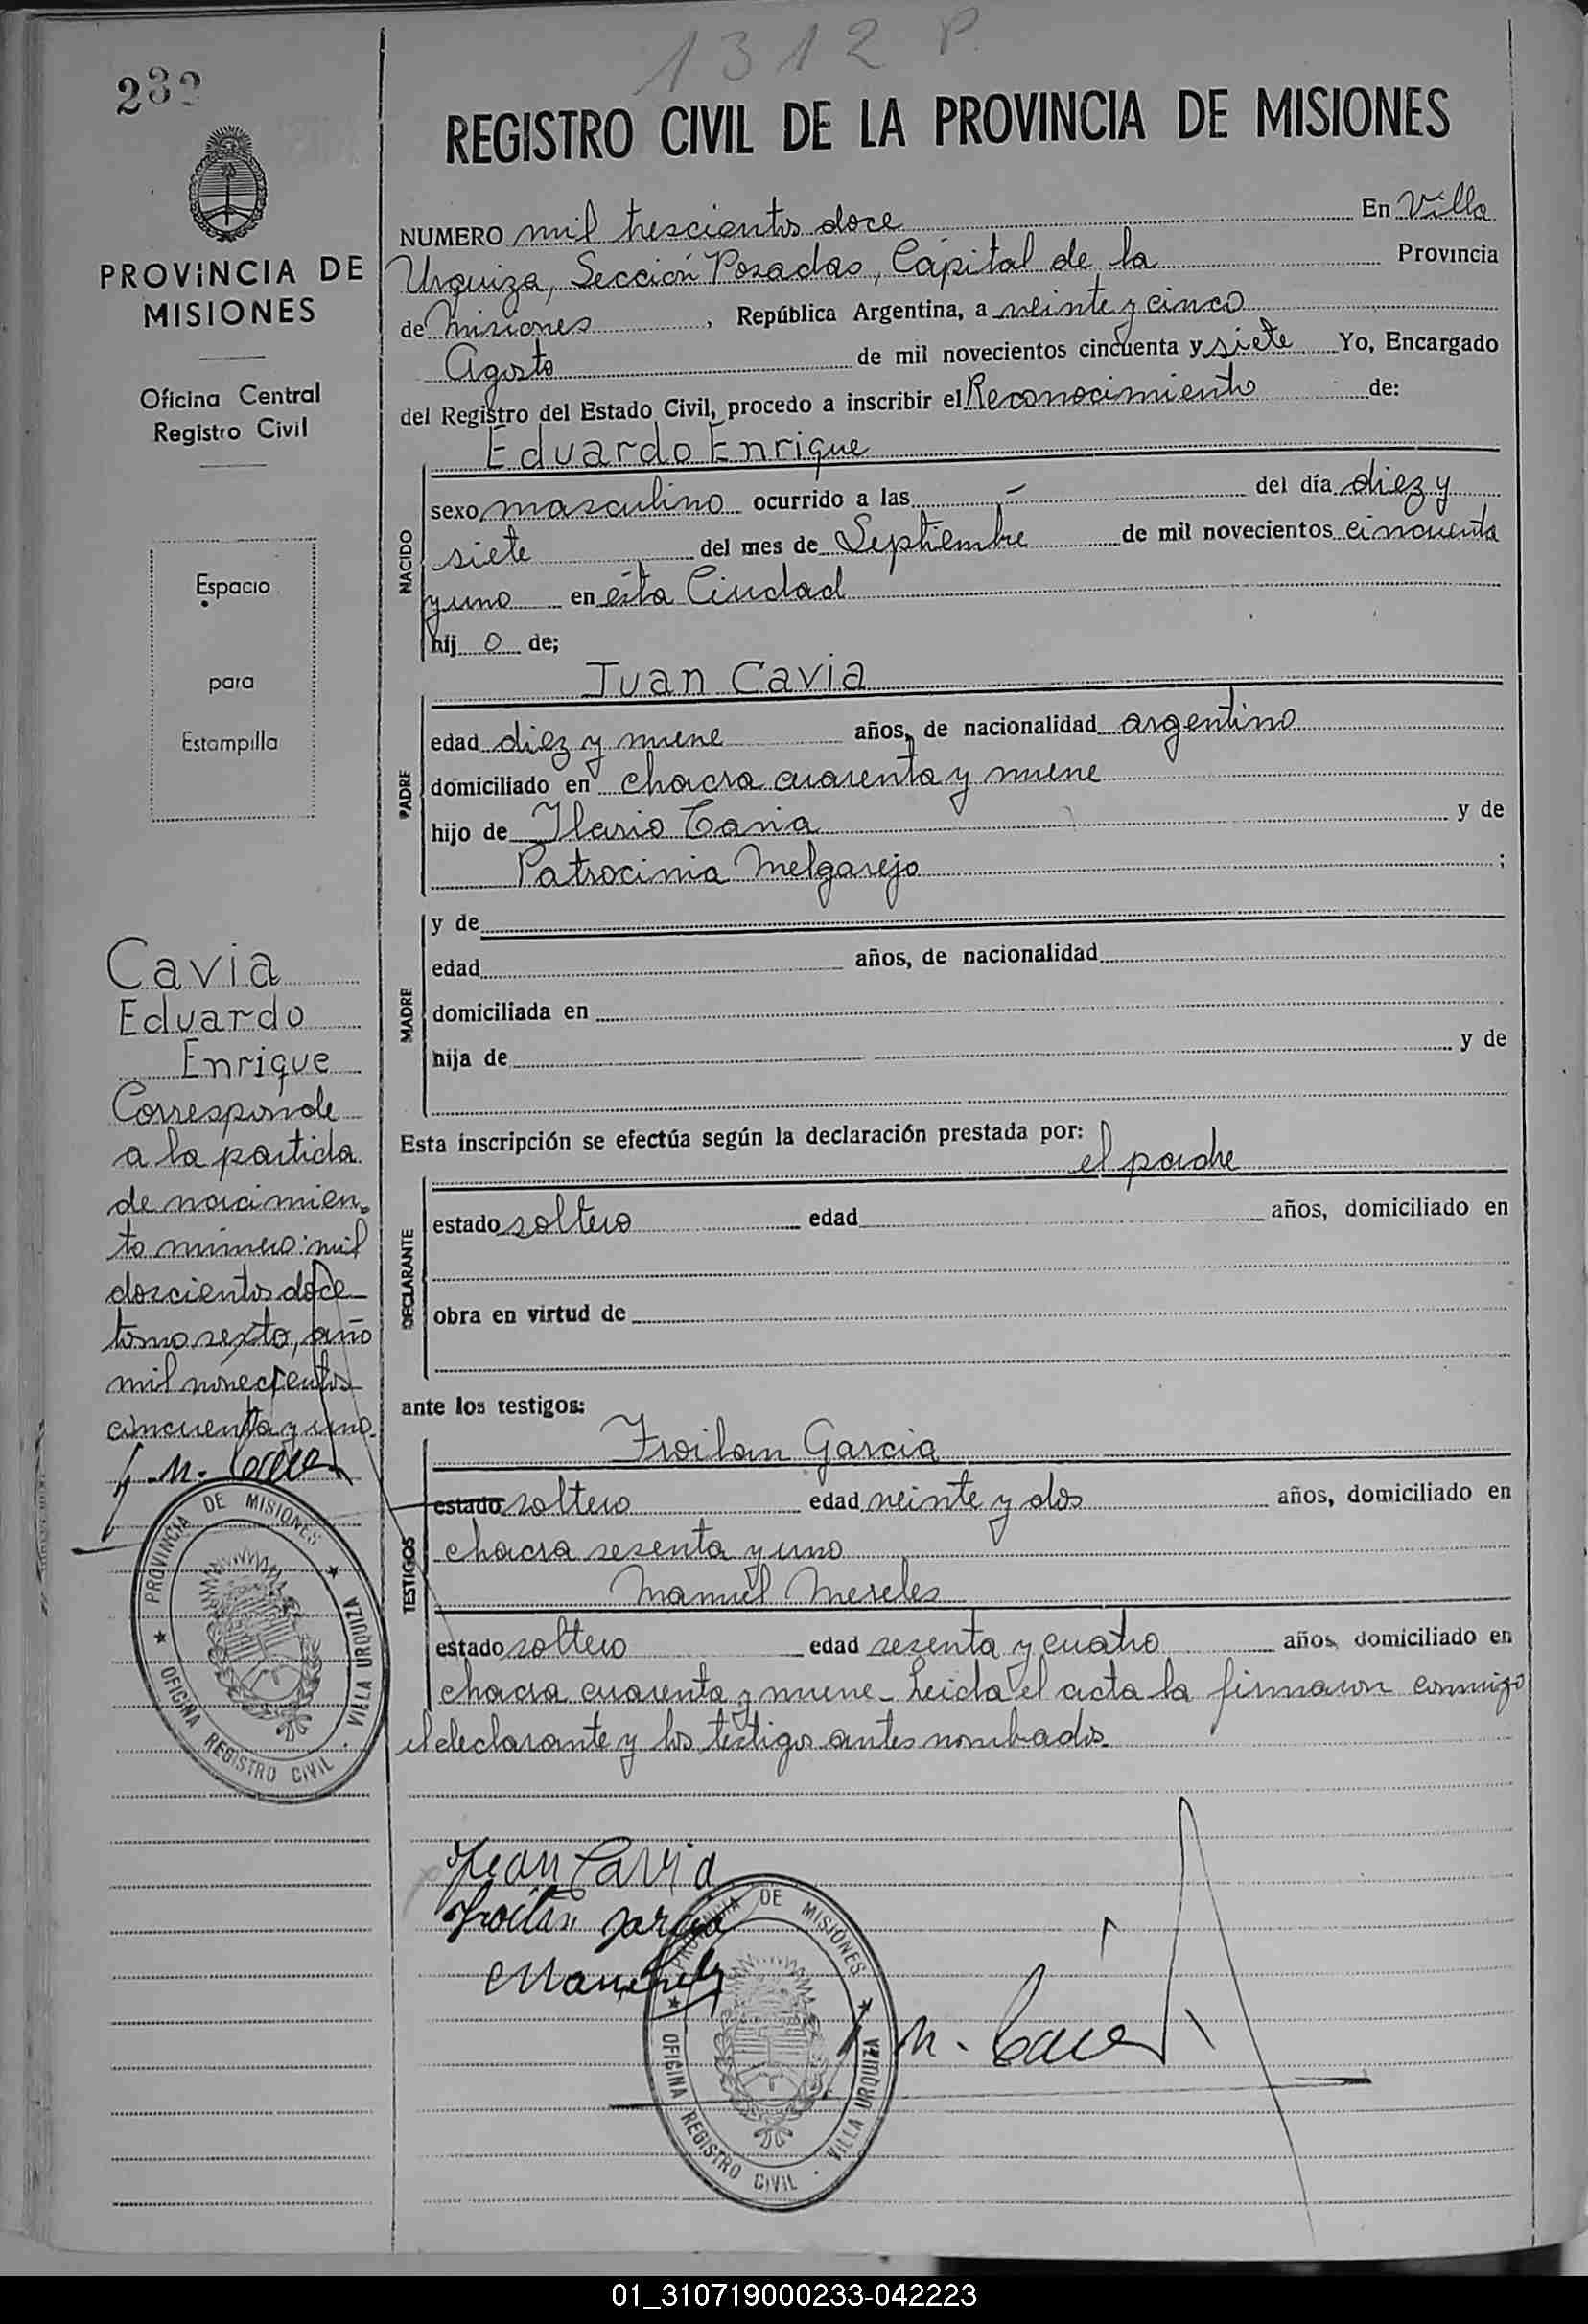 1312 P.
232
REGISTRO CIVIL DE LA PROVINCIA DE MISIONES
PROVINCIA DE
MISIONES
Oficina Central
Registro Civil
Espacio
para
Estampilla
NUMERO mil trescientos doce En Villa
Urquiza, Sección Posadas, Capital de la Provincia
de Misiones, República Argentina, a veinte y cinco
Agosto de mil novecientos cincuenta y siete Yo, Encargado
del Registro del Estado Civil, procedo a inscribir el Reconocimiento de:
Eduardo Enrique
NACIDO
sexo masculino ocurrido a las - del día diez y
siete del mes de Septiembre de mil novecientos cincuenta
y uno en ésta Ciudad
hij o de;
Juan Cavia
PADRE
edad diez y nueve años, de nacionalidad argentino
domiciliado en chacra cuarenta y nueve
hijo de Ilario Cavia y de
Patrocinia Melgarejo ;
MADRE
y de
edad años, de nacionalidad
domiciliada en
hija de y de
Esta inscripción se efectúa según la declaración prestada por:
el padre
DECLARANTE
estado soltero edad años, domiciliado en
obra en virtud de
ante los testigos:
Froilan Garcia
TESTIGOS
estado soltero edad veinte y dos años, domiciliado en
chacra sesenta y uno
Manuel Meseles
estado soltero edad sesenta y cuatro años, domiciliado en
chacra cuarenta y nueve - Leida el acta la firmaron conmigo
el declarante y los testigos antes nombrados.
Cavia
Eduardo
Enrique
Corresponde
a la partida
de nacimien-
to número: mil
doscientos doce
tomo sexto, año
mil novecientos
cincuenta y uno.
PROVINCIA DE MISIONES
OFICINA REGISTRO CIVIL · VILLA URQUIZA
Juan Cavia
Froilan Garcia
PROVINCIA DE MISIONES
OFICINA REGISTRO CIVIL · VILLA URQUIZA
01_310719000233-042223